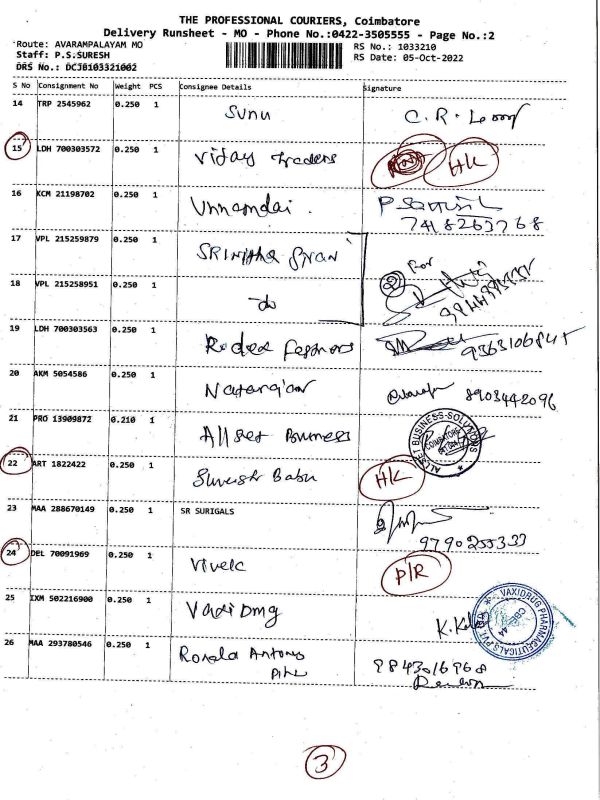 THE PROFESSIONAL COURIERS, Coimbatore
Delivery Runsheet - MO - Phone No.:0422-3505555 - Page No.:2
Route: AVARAMPALAYAM MO RS No.: 1033210
Staff: P.S.SURESH RS Date: 05-Oct-2022
DRS No.: DCJ0103321002
S No Consignment No Weight PCS Consignee Details Signature
14 TRP 2545962 0.250 1 Sunu C.R.
15 LDH 700303572 0.250 1 Vijay Traders HK
16 KCM 21198702 0.250 1 Unnamdai.
7418263768
17 VPL 215259879 0.250 1
For
18 VPL 215258951 0.250 1 do 2
19 LDH 700303563 0.250 1
20 AKM 5054586 0.250 1 Natarajan 8903442096
21 PRO 13909872 0.210 1 Allset Business ALLSET BUSINESS SOLUTIONS COIMBATORE
22 ART 1822422 0.250 1 Suresh Babu HK
23 MAA 288670149 0.250 1 SR SURIGALS
9790255333
24 DEL 70091969 0.250 1 Vivek P/R
25 IXM 502216900 0.250 1 VAXIDRUG PHARMACEUTICALS PVT. LTD
26 MAA 293780546 0.250 1 Ronald Antony 9843016968
3